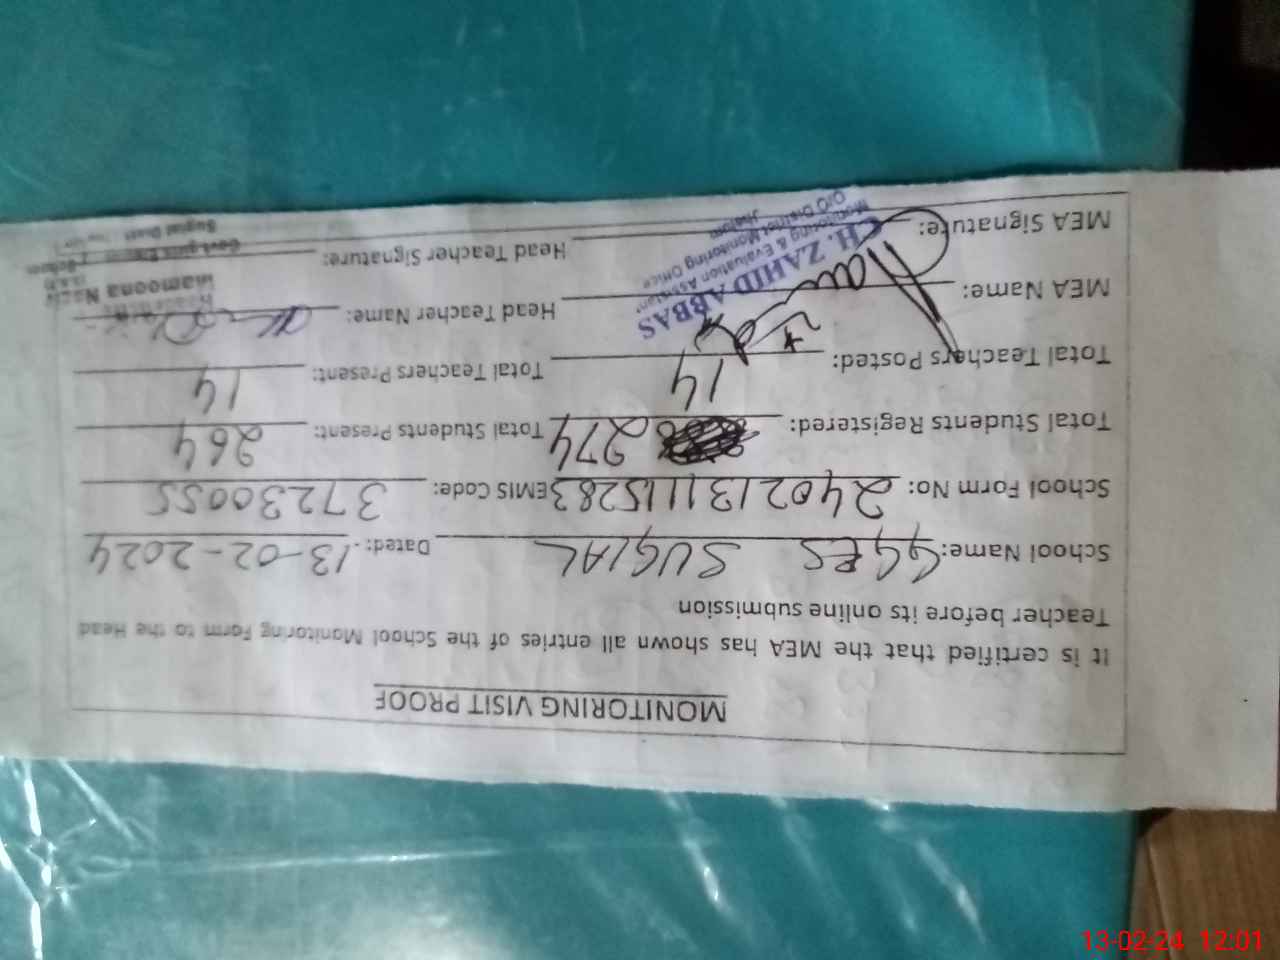 MONITORING VISIT PROOF
It is certified that the MEA has shown all entries of the School Monitoring Form to the Head
Teacher before its online submission
School Name: GGES SUGIAL Dated: 13-02-2024
School Form No: 2402131115283 EMIS Code: 37230055
Total Students Registered: 274 Total Students Present: 264
Total Teachers Posted: 14 Total Teachers Present: 14
MEA Name: Head Teacher Name:
CH. ZAHID ABBAS
Monitoring & Evaluation Assistant
O/O District Monitoring Office
Jhelum
Mamoona
MEA Signature: Head Teacher Signature:
13-02-24 12:01